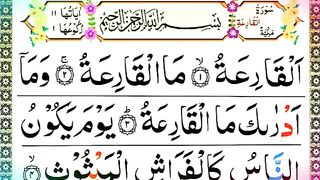 سُوْرَةُ الْقَارِعَةِ مَكِّيَّةٌ
بِسْمِ اللّٰهِ الرَّحْمٰنِ الرَّحِيْمِ
اٰيَاتُهَا ١١ رُكُوْعُهَا ١
اَلْقَارِعَةُ ۙ ١ مَا الْقَارِعَةُ ۚ ٢ وَمَاۤ
اَدْرٰىكَ مَا الْقَارِعَةُ ؕ ٣ يَوْمَ يَكُوْنُ
النَّاسُ كَالْفَرَاشِ الْمَبْثُوْثِ ۙ ٤